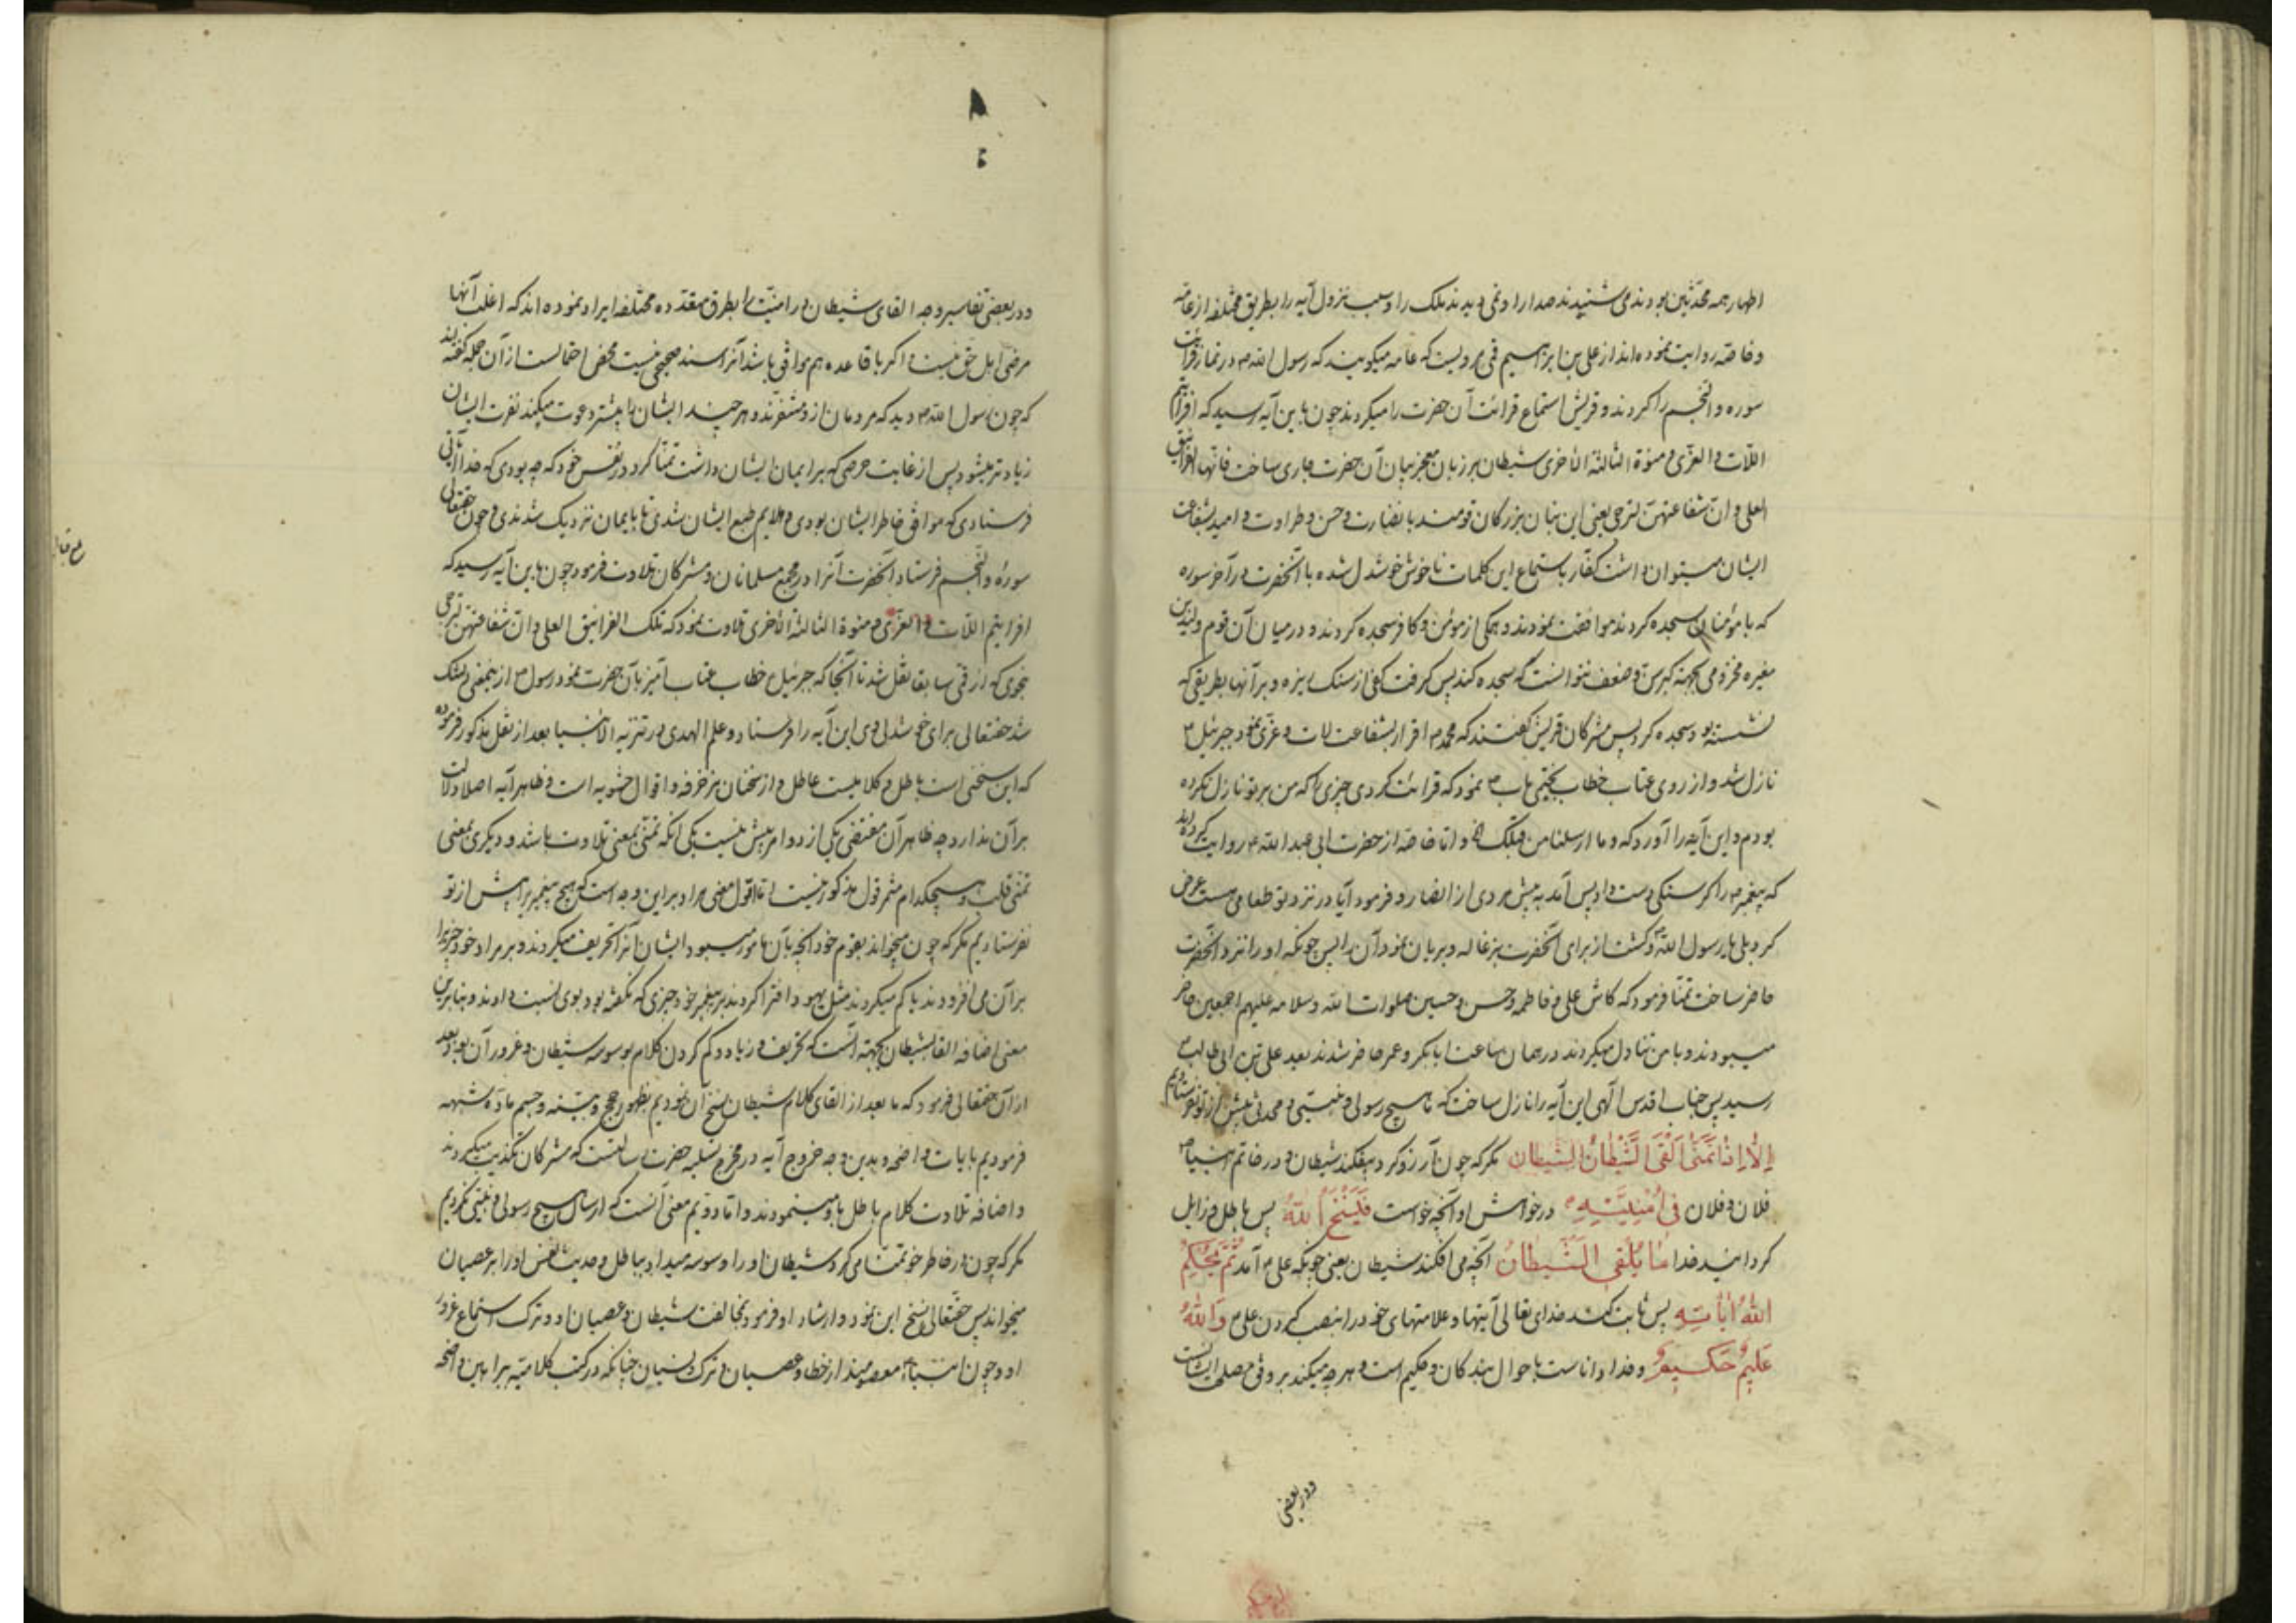 اطهار همه محدّثین بودند می شنیدند صدا را و نمی دیدند ملک را و سبب نزول آیه را بطریق مختلفه از عامّه
و خاصّه روایت نموده اند از علی بن ابراهیم قمی مرویست که عامه میکویند که رسول الله ص در نماز قرائت
سوره والنّجم را کردند و قریش استماع قرائت آن حضرت را میکردند چون باین آیه رسید که افرأیتم
اللّات و العزّی و منوة الثالثة الاخری شیطان بر زبان معجز بیان آن حضرت جاری ساخت فانها الغرانیق
العلی و انّ شفاعتهنّ لترجی یعنی این بتان بزرکان قومند بانضارت و حسن و طراوت و امید بشفاعت
ایشان میتوان داشت کفّار باستماع این کلمات ناخوش خوشدل شده با آنحضرت در آخر سوره
که با مؤمنان سجده کردند موافقت نمودند و همکی از مؤمن و کافر سجده کردند و در میان آن قوم ولید بن
مغیره مخزومی بجهة کبر سن و ضعف نتوانست که سجده کند پس کرفت کفی از سنک ریزه و بر آنها بطریقی که
نشسته بود سجده کرد پس مشرکان قریش کفتند که محمد ص اقرار بشفاعت لات و عزّی نمود جبرئیل ع
نازل شد و از روی عتاب خطاب بختمی ماب ص نمود که قرائت کردی چیزی را که من بر تو نازل نکرده
بودم و این آیه را آورد که و ما ارسلنا من قبلک الخ و اما خاصّه از حضرت ابی عبد الله ع روایت کرده اند
که پیغمبر ص را کرسنکی دست داد پس آمد به پیش مردی از انصار و فرمود آیا در نزد تو طعامی هست عرض
کرد بلی یا رسول الله و کشت از برای آنحضرت بزغاله و بریان نمود آن را پس چونکه او را نزد آنحضرت
حاضر ساخت تمنّا فرمود که کاش علی و فاطمه و حسن و حسین صلوات الله و سلامه علیهم اجمعین حاضر
میبودند و با من تناول میکردند در همان ساعت ابابکر و عمر حاضر شدند بعد علی بن ابی طالب ع
رسید پس جناب اقدس الهی این آیه را نازل ساخت که ما هیچ رسولی و نبیّی و محدثی پیش از تو نفرستادیم
اِلّا اِذا تَمَنّٰی اَلْقَی الشَّیْطانُ الشیطان مکر که چون آرزو کرد بیفکند شیطان و در خاتم انبیا ص
فلان و فلان فی اُمْنِیَّتِهِ در خواهش او آنچه خواست فَیَنْسَخُ اللهُ پس باطل و زایل
کردانید خدا ما یُلْقِی الشَّیْطانُ آنچه می افکند شیطان یعنی چونکه علی ع آمد ثُمَّ یُحْکِمُ
اللهُ اٰیاتِهِ پس ثابت کند خدای تعالی آیتها و علامتهای خود را بنصب کردن علی ع وَاللهُ
عَلیمٌ حَکیمٌ و خدا داناست باحوال بندکان و حکیم است و هر چه میکند بر وفق مصلحت ایشانست
و در بعضی
و در بعضی تفاسیر وجه القای شیطان در امنیّت را بطرق متعدّده مختلفه ایراد نموده اند که اغلب آنها
مرضی اهل حق نیست و اکر با قاعده هم موافق باشد آنرا سند صحیحی نیست محض احتمالست از آن جمله کفته اند
که چون رسول الله ص دید که مردمان از او متنفرند و هر چند ایشان را بیشتر دعوت میکند نفرت ایشان
زیادتر میشود پس از غایت حرصی که بر ایمان ایشان داشت تمنّا کرد در نفس خود که چه بودی که خدا آیتی
فرستادی که موافق خاطر ایشان بودی و ملایم طبع ایشان شدی تا بایمان نزدیک شدندی و چون حقتعالی
سوره والنّجم فرستاد آنحضرت آنرا در مجمع مسلمانان و مشرکان تلاوت فرمود چون باین آیه رسید که
افرایتم اللّات و العزّی و منوة الثالثة الاخری تلاوت نمود که تلک الغرانیق العلی و انّ شفاعتهنّ لترجی
بنحوی که از قمی سابقا نقل شد تا آنجا که جبرئیل ع خطاب عتاب آمیز بآن حضرت نمود رسول ص از این معنی دلتنک
شد حقتعالی برای خوشدلی وی این آیه را فرستاد و علم الهدی در تنزیه الانبیا بعد از نقل مذکور فرموده
که این سخنی است باطل و کلامیست عاطل و از سخنان مزخرفه و اقوال حشویه است و ظاهر آیه اصلا دلالت
بر آن ندارد چه ظاهر آن مقتضی یکی از دو امر بیش نیست یکی آنکه تمنّی بمعنی تلاوت باشد و دیکری بمعنی
تمنّی قلب و هیچکدام مثمر قول مذکور نیست اما اول معنی مراد بر این وجه است که هیچ پیغمبر را پیش از تو
نفرستادیم مکر که چون میخواند بقوم خود آنچه بآن مامور میبود ایشان آنرا تحریف میکردند و بر مراد خود چیزی را
بر آن می افزودند یا کم میکردند مثل یهود و افترا کردند بر پیغمبر خود چیزی که نکفته بود بوی نسبت دادند و بنابراین
معنی اضافه القا بشیطان بجهته آنست که تحریف و زیاد و کم کردن کلام بوسوسه شیطان و غرور آن بود و بعد
از آن حقتعالی فرمود که ما بعد از القای کلام شیطان نسخ آن نمودیم بظهور حجج و بیّنه و حسم مادّه شبهه
فرمودیم بایات واضحه و بدین وجه خروج آیه در مخرج تسلیه حضرت رسالتست که مشرکان تکذیب میکردند
و اضافه تلاوت کلام باطل باو مینمودند و اما دوّیم معنی آنست که ارسال هیچ رسولی و نبیّی نکردیم
مکر که چون در خاطر خود تمنّا می کرد شیطان او را وسوسه میداد بباطل و حدیث نفس او را بر عصیان
میخواند پس حقّتعالی نسخ این نمود و ارشاد او فرمود بمخالفت شیطان و عصیان او و ترک استماع غرور
او و چون انبیاء ع معصومند از خطا و عصیان و ترک و نسیان چنانکه در کتب کلامیّه ببراهین واضحه